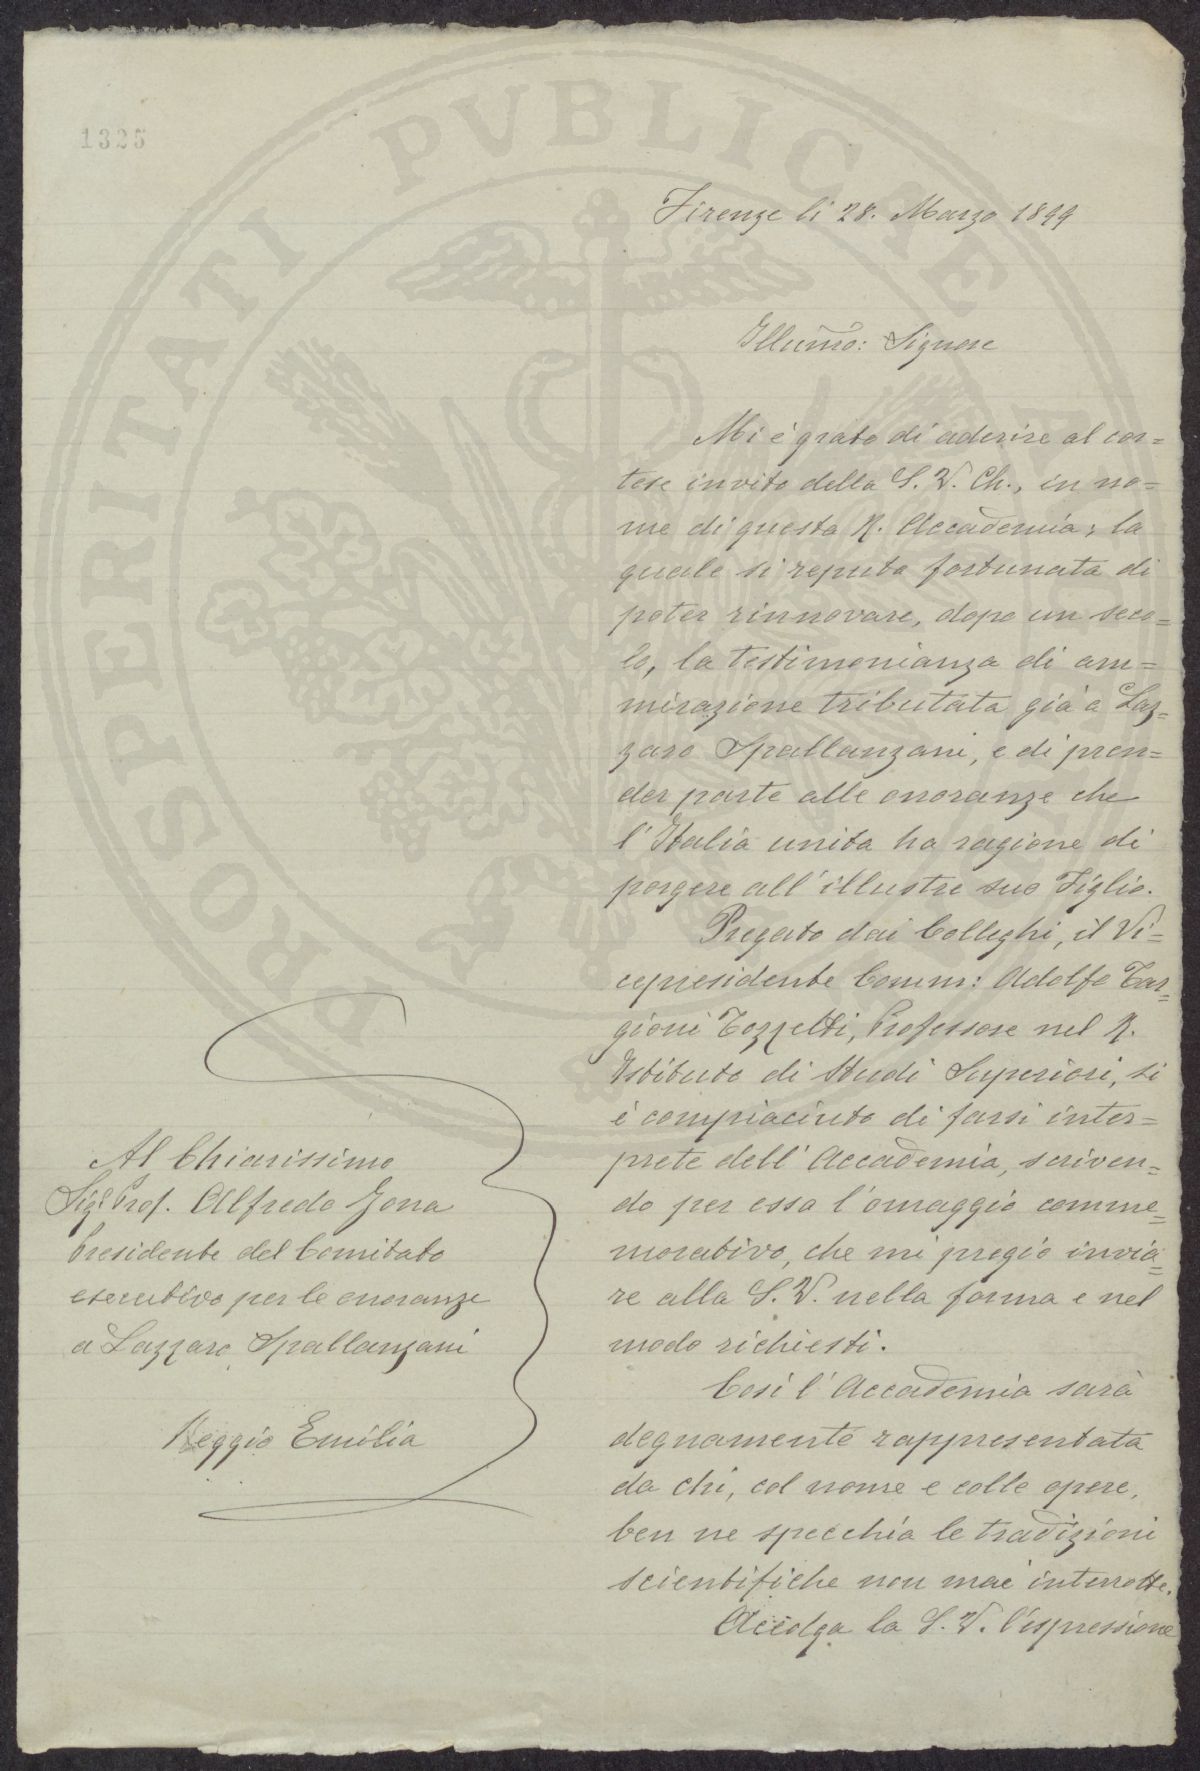 1325
PROSPERITATI PVBLICAE A
Firenze li 28. Marzo 1899
Illumo: Signore
Mi è grato di aderire al cor=
tese invito della S. V. Ch., in no=
me di questa R. Accademia; la
quale si reputa fortunata di
poter rinnovare, dopo un seco=
lo, la testimonianza di am=
mirazione tributata già a Laz=
zaro Spallanzani, e di pren=
der parte alle onoranze che
l'Italia unita ha ragione di
porgere all'illustre suo Figlio.
Pregato dai Colleghi, il Vi=
cepresidente Comm: Adolfo Tar=
gioni Tozzetti, Professore nel R.
Istituto di Studi Superiori, si
è compiaciuto di farsi inter=
prete dell'Accademia, scriven=
do per essa l'omaggio comme=
morativo, che mi pregio invia=
re alla S. V. nella forma e nel
modo richiesti.
Così l'Accademia sarà
degnamente rappresentata
da chi, col nome e colle opere,
ben ne specchia le tradizioni
scientifiche non mai interrotte.
Accolga la S. V. l'espressione
Al Chiarissimo
Sigr Prof. Alfredo Jona
Presidente del Comitato
esecutivo per le onoranze
a Lazzaro Spallanzani
Reggio Emilia